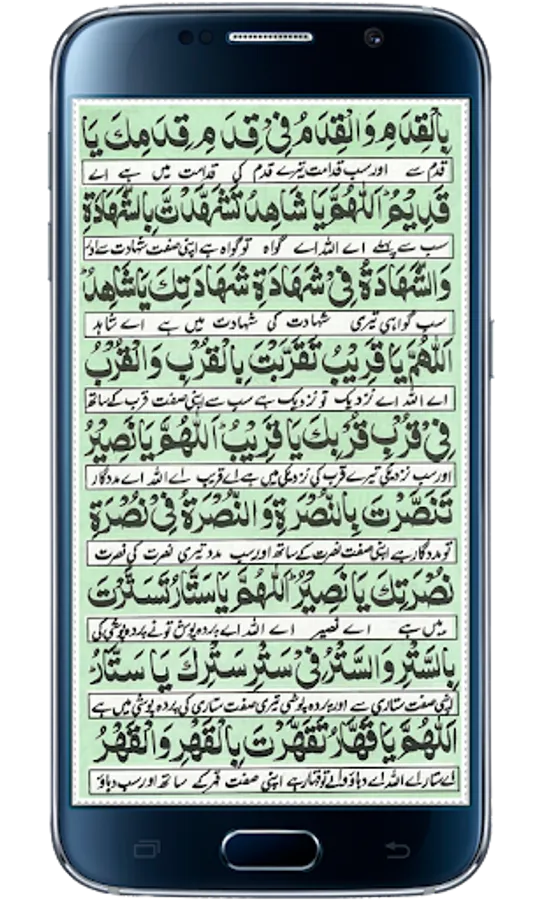 بِالْقِدَمِ وَالْقِدَمُ فِيْ قِدَمِ قِدَمِكَ يَا
قدم سے اور سب قدامت تیرے قدم کی قدامت میں ہے اے
قَدِيْمُ اَللّٰهُمَّ يَا شَاهِدُ تَشَهَّدْتَّ بِالشَّهَادَةِ
سب سے پہلے اے اللہ اے گواہ تو گواہ ہے اپنی صفت شہادت سے اور
وَالشَّهَادَةُ فِيْ شَهَادَةِ شَهَادَتِكَ يَا شَاهِدُ
سب گواہی تیری شہادت کی شہادت میں ہے اے شاہد
اَللّٰهُمَّ يَا قَرِيْبُ تَقَرَّبْتَ بِالْقُرْبِ وَالْقُرْبُ
اے اللہ اے نزدیک تو نزدیک ہے سب سے اپنی صفت قرب کے ساتھ
فِيْ قُرْبِ قُرْبِكَ يَا قَرِيْبُ اَللّٰهُمَّ يَا نَصِيْرُ
اور سب نزدیکی تیرے قرب کی نزدیکی میں ہے اے قریب اے اللہ اے مددگار
تَنَصَّرْتَ بِالنُّصْرَةِ وَالنُّصْرَةُ فِيْ نُصْرَةِ
تو مددگار ہے اپنی صفت نصرت کے ساتھ اور سب مدد تیری نصرت کی نصرت
نُصْرَتِكَ يَا نَصِيْرُ اَللّٰهُمَّ يَا سَتَّارُ تَسَتَّرْتَ
میں ہے اے نصیر اے اللہ اے پردہ پوش تونے پردہ پوشی کی
بِالسَّتْرِ وَالسَّتْرُ فِيْ سَتْرِ سَتْرِكَ يَا سَتَّارُ
اپنی صفت ستاری سے اور پردہ پوشی تیری صفت ستاری کی پردہ پوشی میں ہے
اَللّٰهُمَّ يَا قَهَّارُ تَقَهَّرْتَ بِالْقَهْرِ وَالْقَهْرُ
اے ستار اے اللہ اے دباؤ والے تو قہار ہے اپنی صفت قہر کے ساتھ اور سب دباؤ